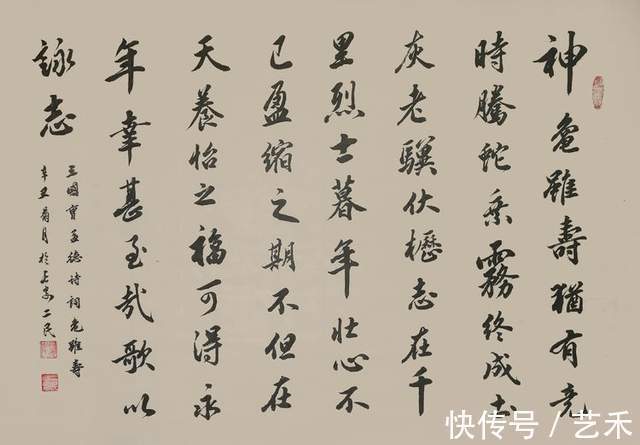 神龜雖壽猶有竟
時騰蛇乘霧終成土
灰老驥伏櫪志在千
里烈士暮年壯心不
已盈縮之期不但在
天養怡之福可得永
年幸甚至哉歌以
詠志
三國曹孟德诗詞龟雖壽
辛丑菊月於二民
快传号/艺禾